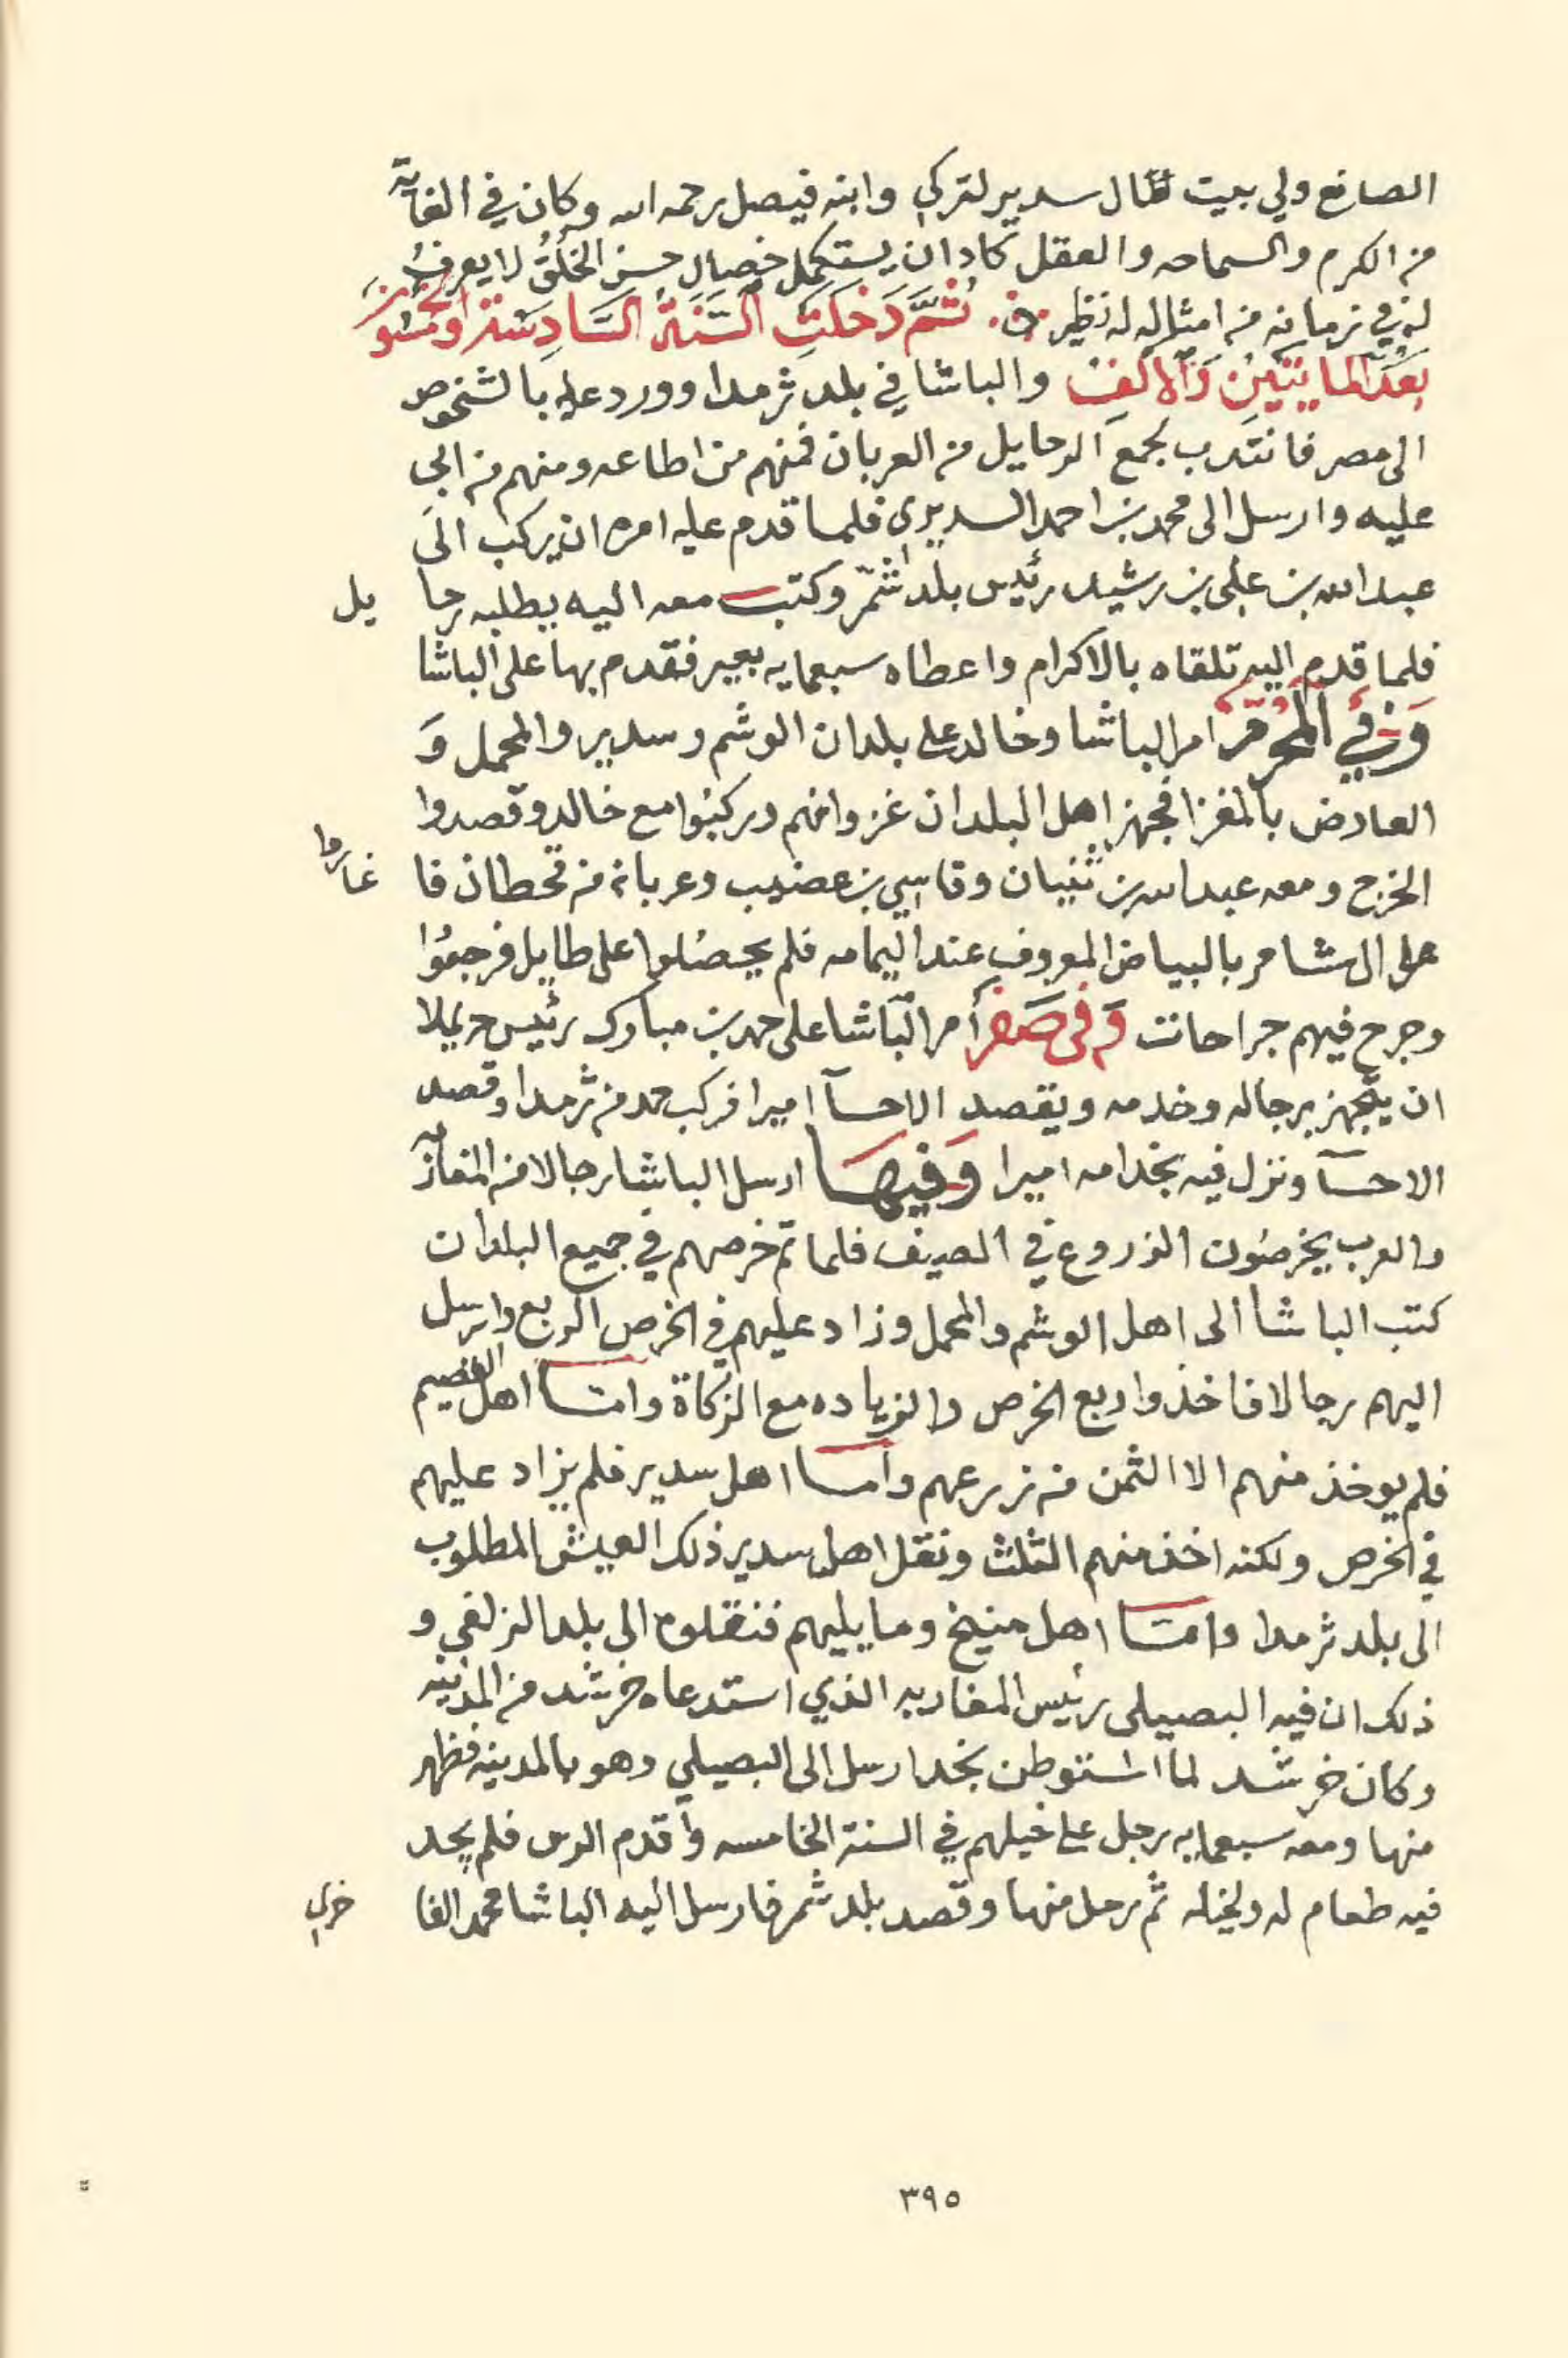 الصانع ولي بيت مال سدير لتركي وابنه فيصل رحمه الله وكان في الغاية
من الكرم والسماحه والعقل كاد ان يستكمل خصال حسن الخلق لا يعرف
له في زمانه من امثاله له نظير ثُمَّ دَخَلَتِ السَّنَةُ السَّادِسَة والخمسون
بَعْدَ المايتَيْنِ وَالالف والباشا في بلد ثرمدا وورد عليه بالشخوص
الى مصر فانتدب لجمع الرحايل من العربان فمنهم من اطاعه ومنهم من ابى
عليه وارسل الى محمد بن احمد السديري فلما قدم عليه امره ان يركب الى
عبد الله بن علي بن رشيد رئيس بلد شمّر وكتب معه اليه يطلبه رحا يل
فلما قدم اليه تلقاه بالاكرام واعطاه سبعمايه بعير فقدم بها على الباشا
وَفي المُحَرَّم امر الباشا وخالد على بلدان الوشم وسدير والمحمل وَ
العارض بالمغزا فجهز اهل البلدان غزوانهم وركبوا مع خالد وقصدوا
الخرج ومعه عبد الله بن ثنيان وقاسي بن عضيب وعربانه من قحطان فا غاروا
على ال شامر بالبياض المعروف عند اليمامه فلم يحصلوا على طايل فرجعوا
وجرح فيهم جراحات وَفي صَفَر أمر الباشا على حمد بن مبارك رئيس حريملا
ان يتجهز برجاله وخدمه ويقصد الاحسآ اميرا فركب حمد من ثرمدا وقصد
الاحسآ ونزل فيه بخدامه اميرا وَفيهَا ارسل الباشا رجالا من المغاربه
والعرب يخرصون الزروع في الصيف فلما تم خرصهم في جميع البلدان
كتب الباشا الى اهل الوشم والمحمل وزاد عليهم في الخرص الربع وارسل
اليهم رجالا فاخذوا ربع الخرص والزياده مع الزكاة وامّا اهل القصيم
فلم يوخذ منهم الا الثمن من زرعهم وامّا اهل سدير فلم يزاد عليهم
في الخرص ولكنه اخذ منهم الثلث ونقل اهل سدير ذلك العيش المطلوب
الى بلد ثرمدا وامّا اهل منيخ وما يليهم فنقلوه الى بلد الزلفي و
ذلك ان فيه البصيلي رئيس المغاربه الذي استدعاه خرشد من المدينه
وكان خرشد لما استوطن نجد ارسل الى البصيلي وهو بالمدينه فظهر
منها ومعه سبعمايه رجل على خيلهم في السنة الخامسه واقدم الرس فلم يجد
فيه طعام له ولخيله ثم رحل منها وقصد بلد شمر فارسل اليه الباشا محمد الفا خري
٣٩٥